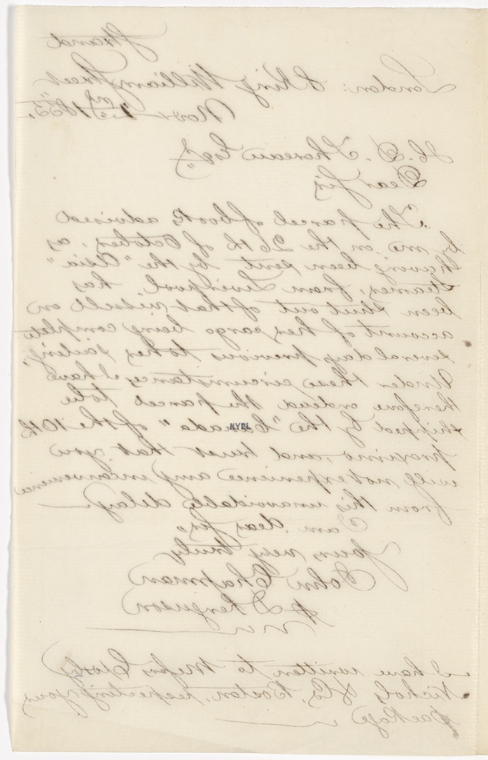 Strand
London: 8 King William Street
Nov. 2nd 1855.
H. D. Thoreau Esq.
Dear Sir,
The parcel of books advised
by me on the 26th of October, as
having been sent by the "Asia"
steamer, from Liverpool, has
been shut out of that vessel on
account of her cargo being complete
several days previous to her sailing.
Under these circumstances I have
therefore ordered the parcel to be
shipped by the "Canada" of the 10th
proximo, and trust that you
will not experience any inconvenience
from this unavoidable delay.
I am, dear Sir,
Yours very truly
John Chapman
p Ferguson
I have written to Messrs Crosby
Nichols & Co, Boston, respecting your
package
NYPL